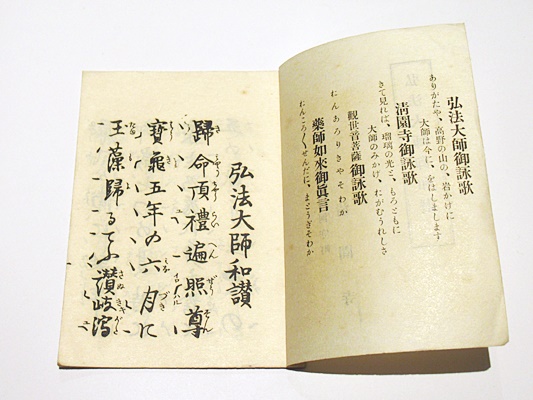 弘法大師御詠歌
ありがたや、高野の山の、岩かげに
大師は今に、をはしまします
清園寺御詠歌
きて見れば、瑠璃の光と、もろともに
大師のみかげ、おがむうれしさ
観世音菩薩御詠歌
おんあろりきやそわか
薬師如来御眞言
おんころ〳〵せんだに、まとうぎそわか
弘法大師和讃
歸命頂禮遍照尊
寶龜五年の六月に
玉藻歸るてふ讃岐潟